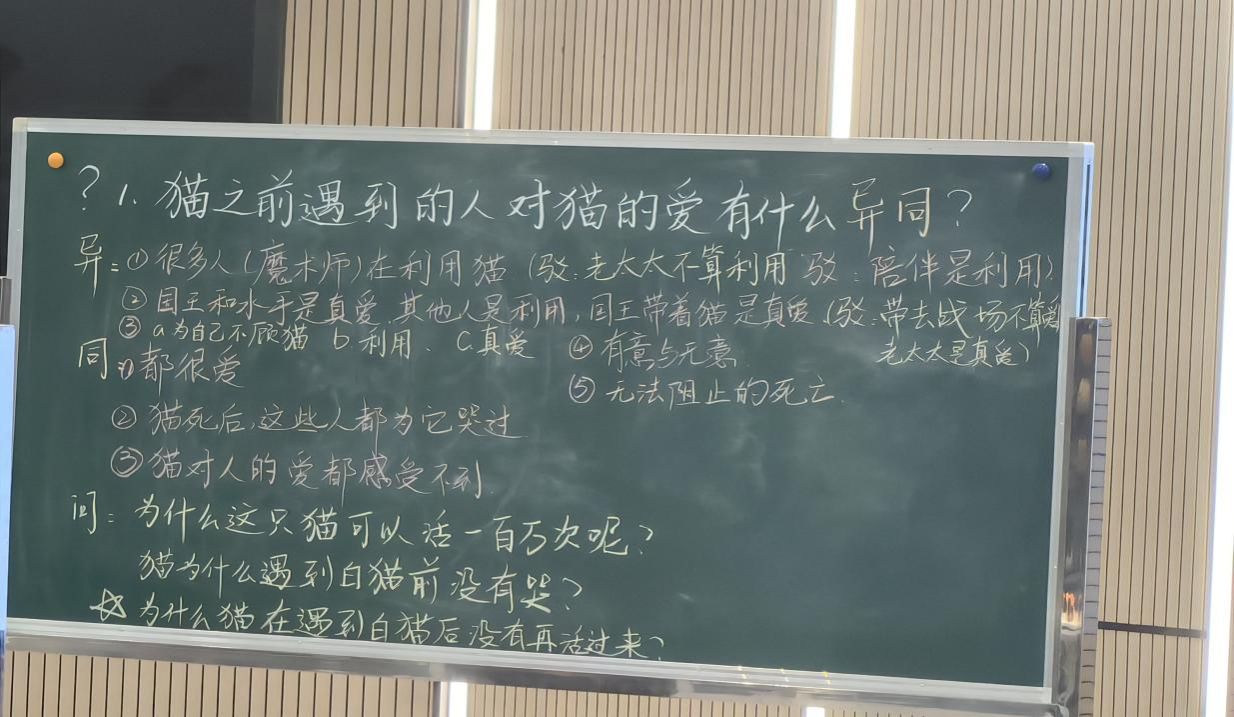 ? 1. 猫之前遇到的人对猫的爱有什么异同?
异:①很多人(魔术师)在利用猫(驳:老太太不算利用 驳:陪伴是利用)
②国王和水手是真爱,其他人是利用,国王带着猫是真爱(驳:带去战场不算爱
老太太是真爱)
③a为自己不顾猫 b.利用、 c.真爱 ④有意与无意
⑤无法阻止的死亡.
同①都很爱
②猫死后,这些人都为它哭过
③猫对人的爱都感受不到.
问:为什么这只猫可以活一百万次呢?
猫为什么遇到白猫前没有哭?
☆为什么猫在遇到白猫后没有再活过来?